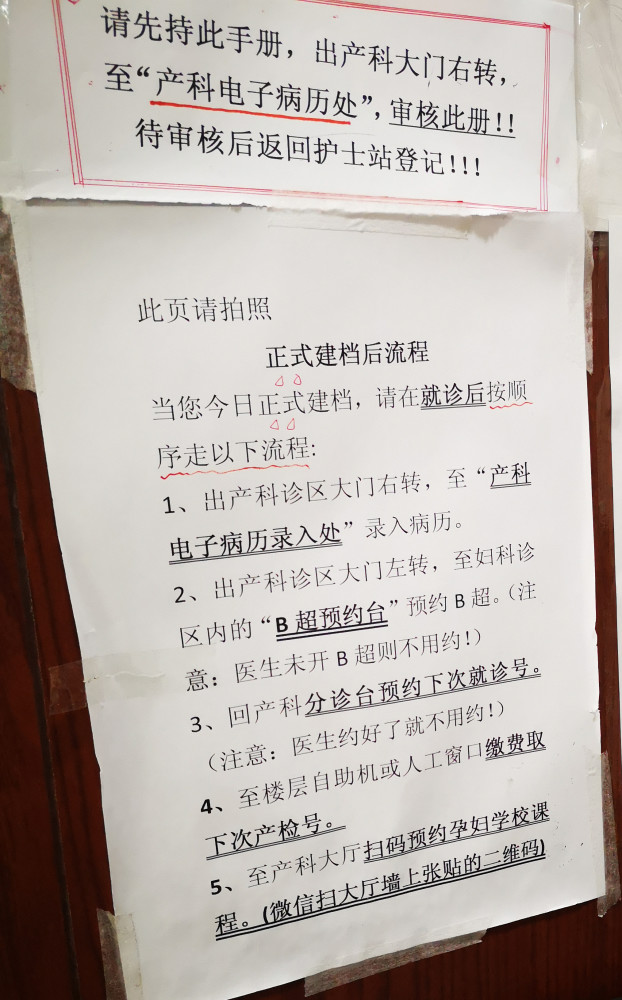 请先持此手册，出产科大门右转，
至“产科电子病历处”，审核此册!!
待审核后返回护士站登记!!!
此页请拍照
正式建档后流程
当您今日正式建档，请在就诊后按顺
序走以下流程:
1、出产科诊区大门右转，至“产科
电子病历录入处”录入病历。
2、出产科诊区大门左转，至妇科诊
区内的“B超预约台”预约B超。（注
意：医生未开B超则不用约!）
3、回产科分诊台预约下次就诊号。
（注意：医生约好了就不用约!）
4、至楼层自助机或人工窗口缴费取
下次产检号。
5、至产科大厅扫码预约孕妇学校课
程。(微信扫大厅墙上张贴的二维码)